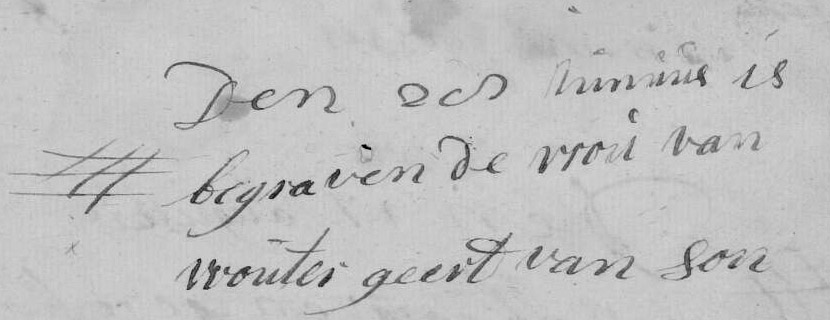 Den 20 Junius is
begraven de vrou van
wouter geert van son